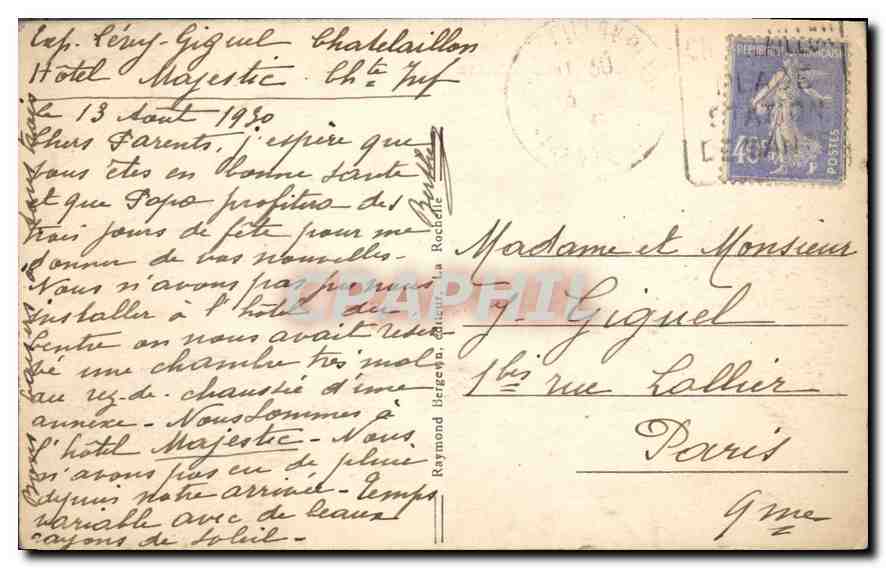 Exp. Lévy-Giguel Chatelaillon
Hôtel Majestic Chte Inf
le 13 Aout 1930
Chers Parents, j'espère que
vous êtes en bonne santé
et que Papa profitera des
trois jours de fête pour me
donner de vos nouvelles.
Nous n'avons pas pu nous
installer à l'hôtel du
Centre on nous avait reser-
vé une chambre très mal
au rez-de-chaussée d'une
annexe - Nous sommes à
l'hôtel Majestic - Nous
n'avons pas eu de pluie
depuis notre arrivée - Temps
variable avec de beaux
rayons de soleil -
Bons baisers à tous trois
Berthe
Raymond Bergevin, éditeur, La Rochelle
REPUBLIQUE FRANÇAISE
40c
POSTES
PLAGE
STATION
Madame et Monsieur
J. Giguel
1bis rue Lallier
Paris
9me
CPAPHIL